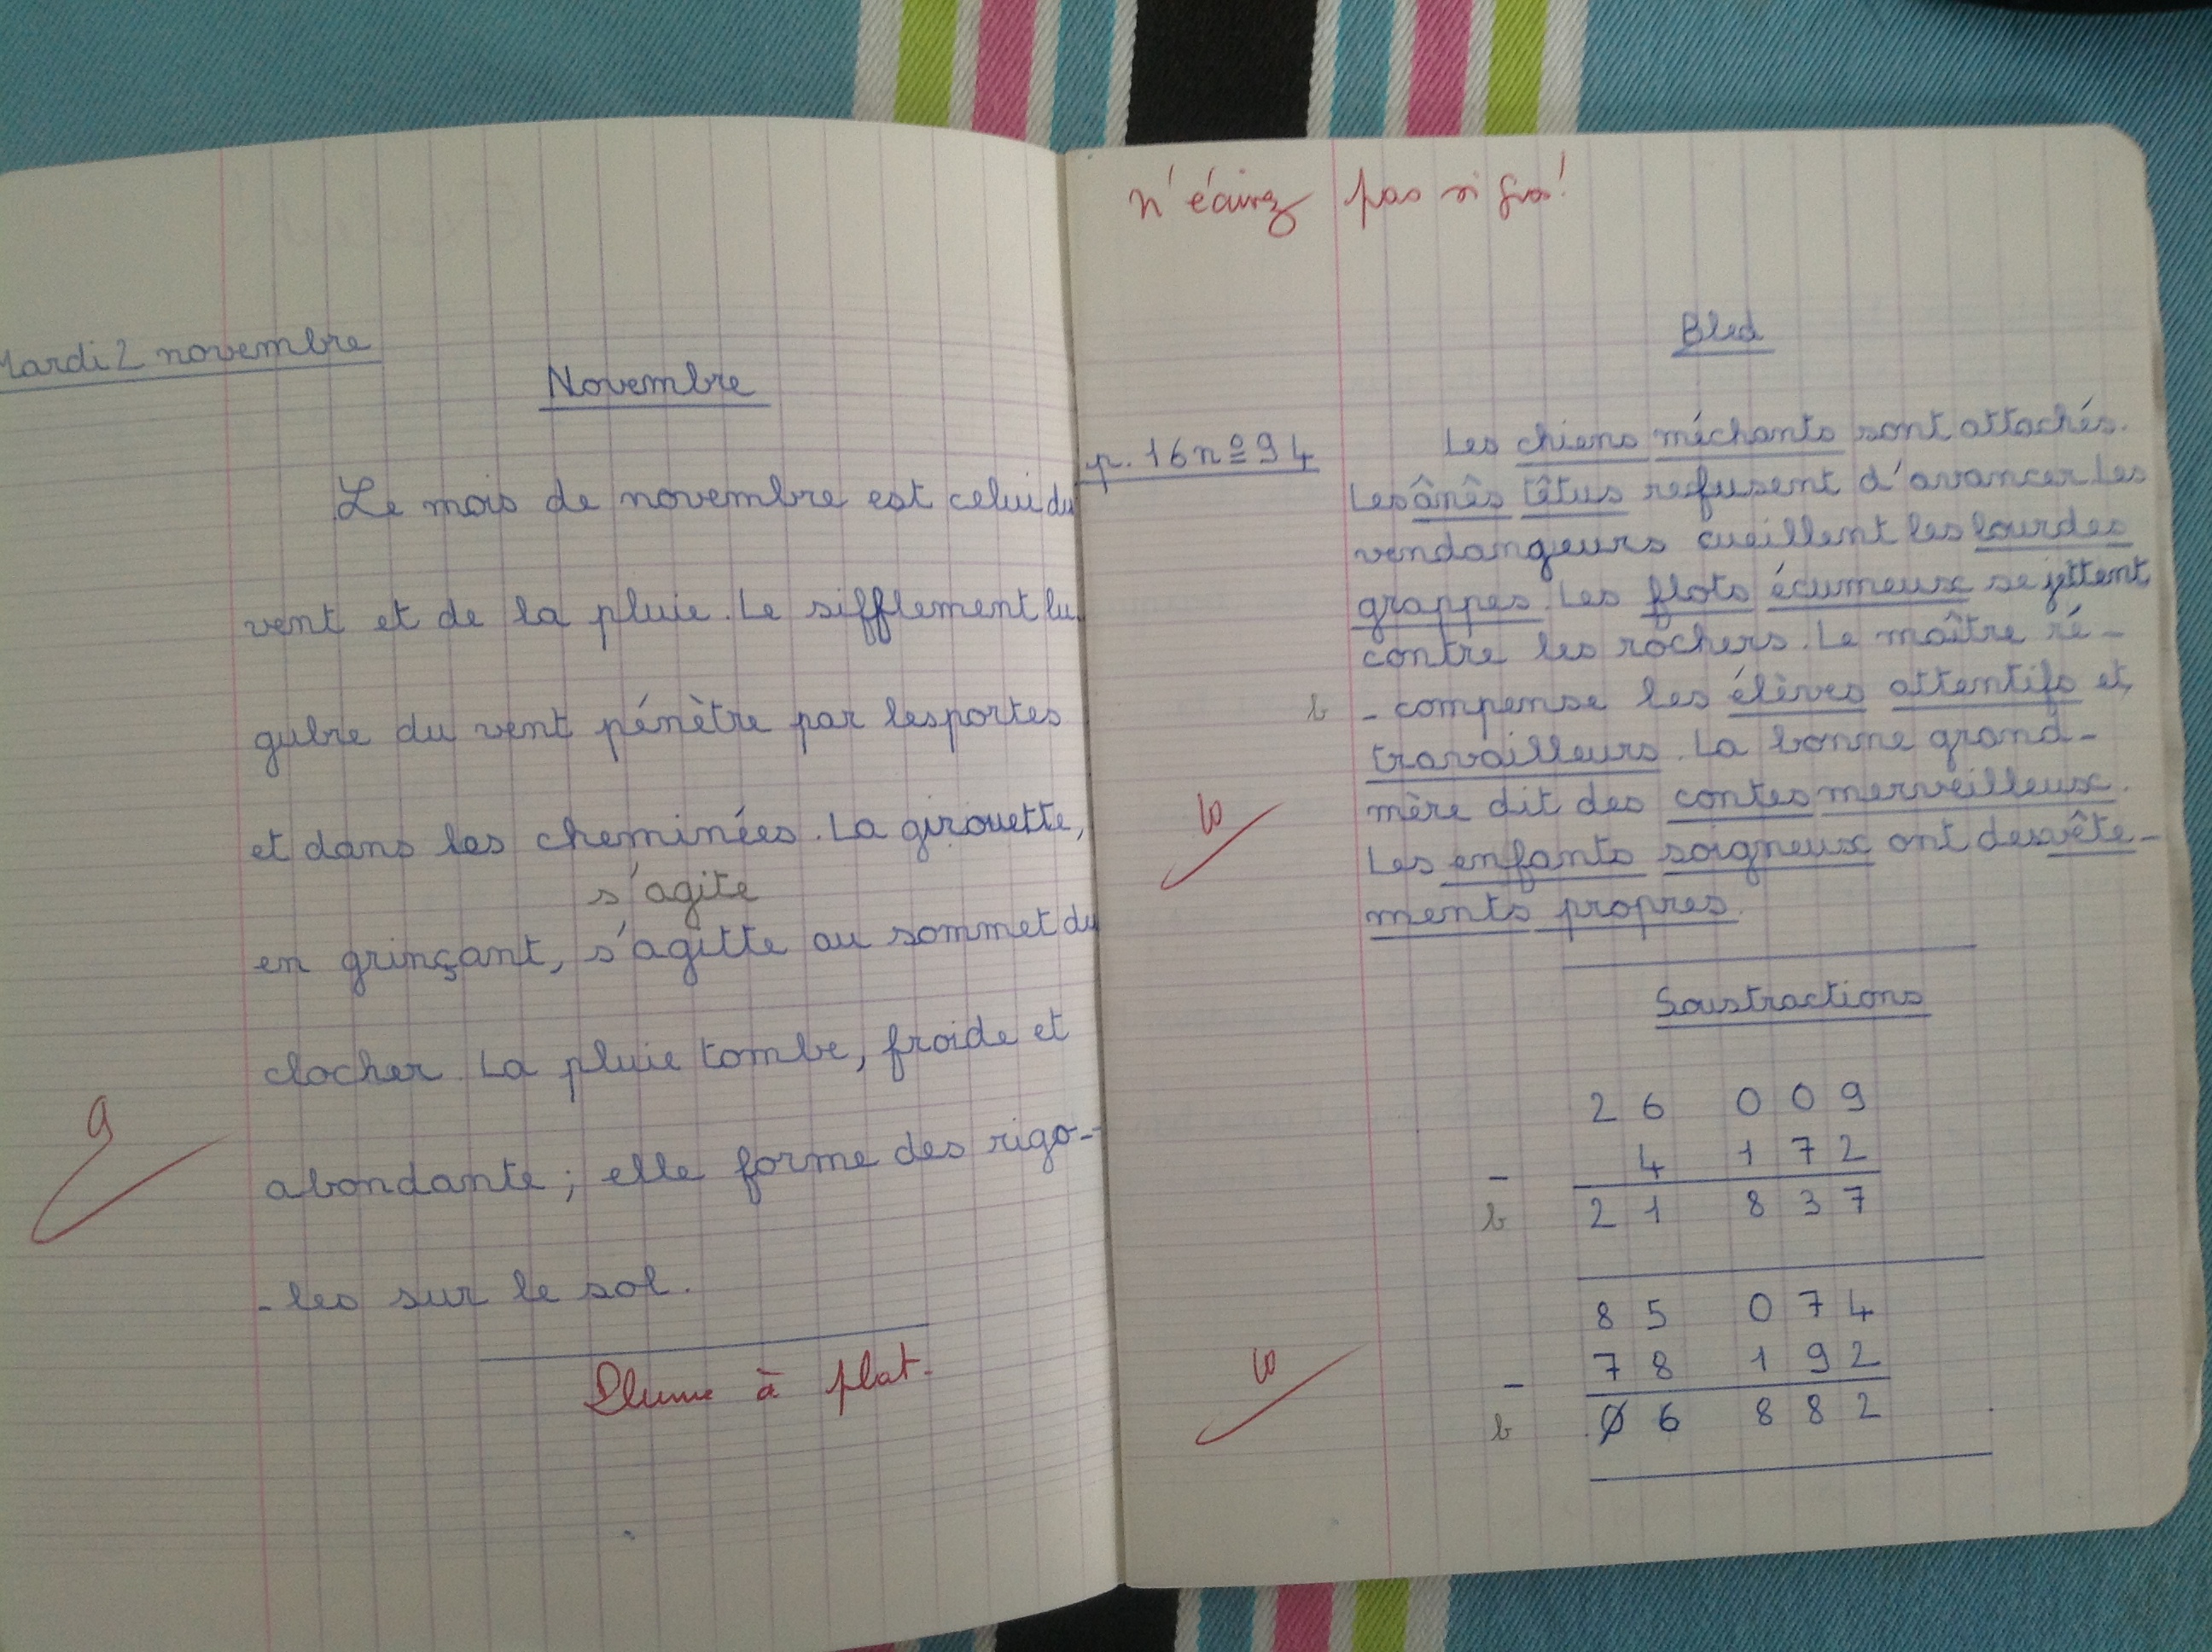 Mardi 2 novembre
Novembre
Le mois de novembre est celui du
vent et de la pluie. Le sifflement lu
gubre du vent pénètre par les portes
et dans les cheminées. La girouette,
s'agite
en grinçant, s'agitte au sommet du
clocher. La pluie tombe, froide et
abondante ; elle forme des rigo-
-les sur le sol.
Plume à plat.
9
n'écrivez pas si gros !
Bled
p. 16 n°94
Les chiens méchants sont attachés.
Les ânes têtus refusent d'avancer. Les
vendangeurs cueillent les lourdes
grappes. Les flots écumeux se jettent
contre les rochers. Le maître ré-
-compense les élèves attentifs et
travailleurs. La bonne grand-
mère dit des contes merveilleux.
Les enfants soigneux ont des vête-
ments propres.
b
10
Soustractions
26 009
- 4 172
21 837
b
85 074
- 78 192
06 882
b
10